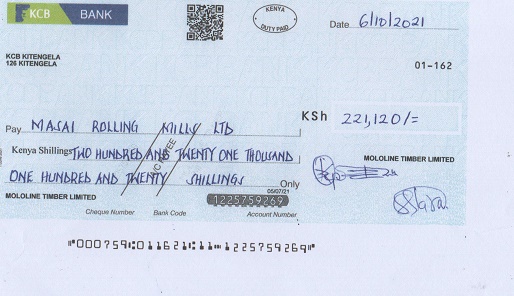 KCB BANK
KENYA
DUTY PAID
Date 6/10/2021
KCB KITENGELA
126 KITENGELA
01-162
KSh 221,120/=
Pay MASAI ROLLING MILLS LTD
Kenya Shillings TWO HUNDRED AND TWENTY ONE THOUSAND
ONE HUNDRED AND TWENTY SHILLINGS Only
MOLOLINE TIMBER LIMITED
05/07/21
MOLOLINE TIMBER LIMITED
1225759269
Cheque Number Bank Code Account Number
⑈000759⑆01162⑆11⑈1225759269⑈